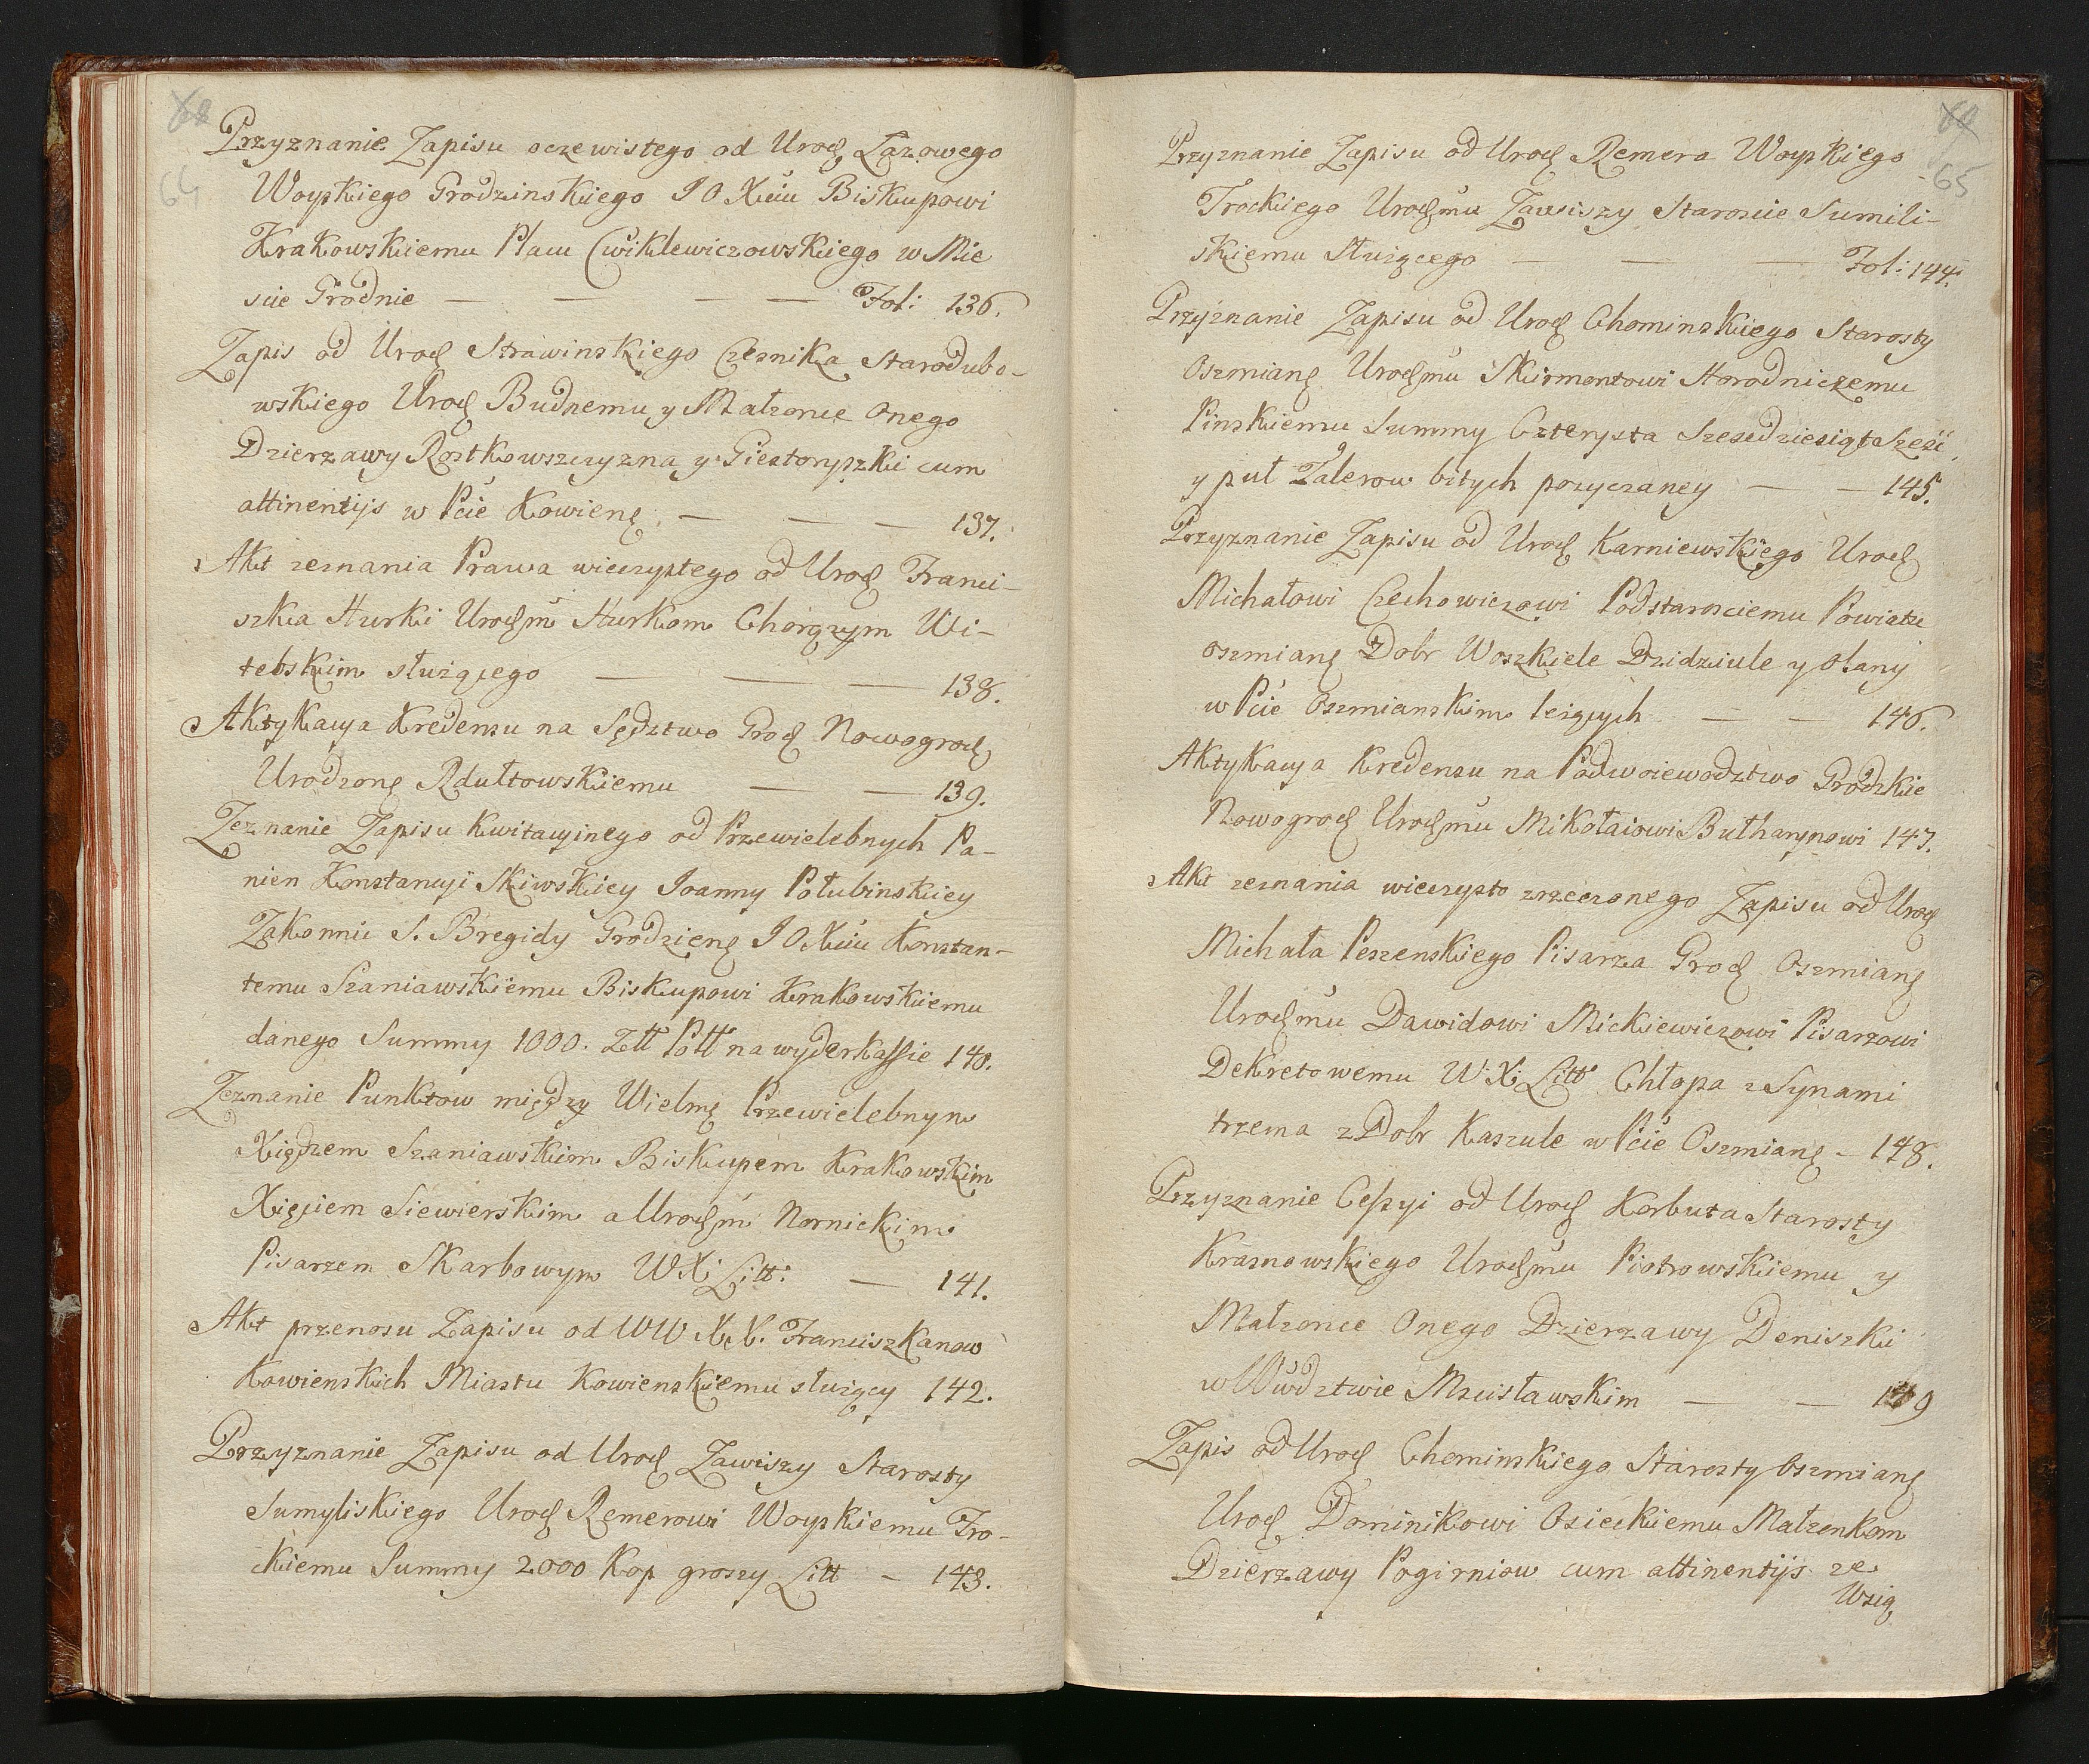 64
Przyznanie Zapisu oczewistego od Urod Łazowego
Woyskiego Grodzinskiego J O Xciu Biskupowi
Krakowskiemu Placu Cwiklewiczowskiego w Mie
scie Grodnie — — — — Fol: 136.
Zapis od Urod Strawinskiego Czesnika Starodubo-
wskiego Urod Budnemu y Małżonce Onego
Dzierzawy Rostkowszczyzna y Giestoryszki cum
attinentijs w Pcie Kowieng — — — 137.
Akt zeznania Prawa wieczystego od Urod Franci-
szka Hurki Urodzm Hurkom Chorążym Wi-
tebskim służącego — — — 138.
Aktykacya Kredensu na Sędztwo Grod Nowogrod
Urodzong Rdułtowskiemu — — 139.
Zeznanie Zapisu Kwitacyinego od Przewielebnych Pa-
nien Konstancyi Skiwskiey Joanny Połubinskiey
Zakonnic S. Bregidy Grodzieng J O Xciu Konstan-
temu Szaniawskiemu Biskupowi Krakowskiemu
danego Summy 1000. Złł Poll na wyderkaffie 140.
Zeznanie Punktow między Wielmg Przewielebnym
Xiędzem Szaniawskim Biskupem Krakowskim
Xięciem Siewierskim a Urodzm Nornickim
Pisarzem Skarbowym W X Litt: — 141.
Akt przenosu Zapisu od WW X.X. Franciszkanow
Kowienskich Miastu Kowienskiemu służący 142.
Przyznanie Zapisu od Urod Zawiszy Starosty
Sumyliskiego Urod Remerowi Woyskiemu Tro-
ckiemu Summy 2000 Kop groszy Litt - 143.
65
Przyznanie Zapisu od Urod Remera Woyskiego
Trockiego Urodzmu Zawiszy Staroscie Sumili-
skiemu Służącego — — — Fol: 144.
Przyznanie Zapisu od Urod Chominskiego Starosty
Oszmiang Urodzmu Skirmontowi Horodniczemu
Pinskiemu Summy Czterysta Szescdziesiąt Sześć
y puł Talerow bitych pozyczaney — — 145.
Przyznanie Zapisu od Urod Karniewskiego Urod
Michałowi Czechowiczowi Podstarosciemu Powiatu
oszmiang Dobr Woszkiele Dzidziule y Olany
w Pcie Oszmianskim leżących — — 146.
Aktykacya Kredensu na Podwoiewodztwo Grodzkie
Nowogrod Urodzmu Mikołaiowi Bułharynowi 147.
Akt zeznania wieczysto zrzeczonego Zapisu od Urod
Michała Peszenskiego Pisarza Grod Oszmiang
Urodzmu Dawidowi Mickiewiczowi Pisarzowi
Dekretowemu W: X: Litt Chłopa z Synami
trzema z Dobr Kaszule w Pcie Oszmiang - 148.
Przyznanie Cessyi od Urod Korbuta Starosty
Krasnowskiego Urodzmu Piotrowskiemu y
Małzonce Onego Dzierzawy Deniszki
w Wwdztwie Mscisławskim — — 149
Zapis od Urod Chominskiego Starosty Oszmiang
Urod Dominikowi Osieckiemu Małzenkom
Dzierzawy Pogirniow cum attinentijs ze
Wsią